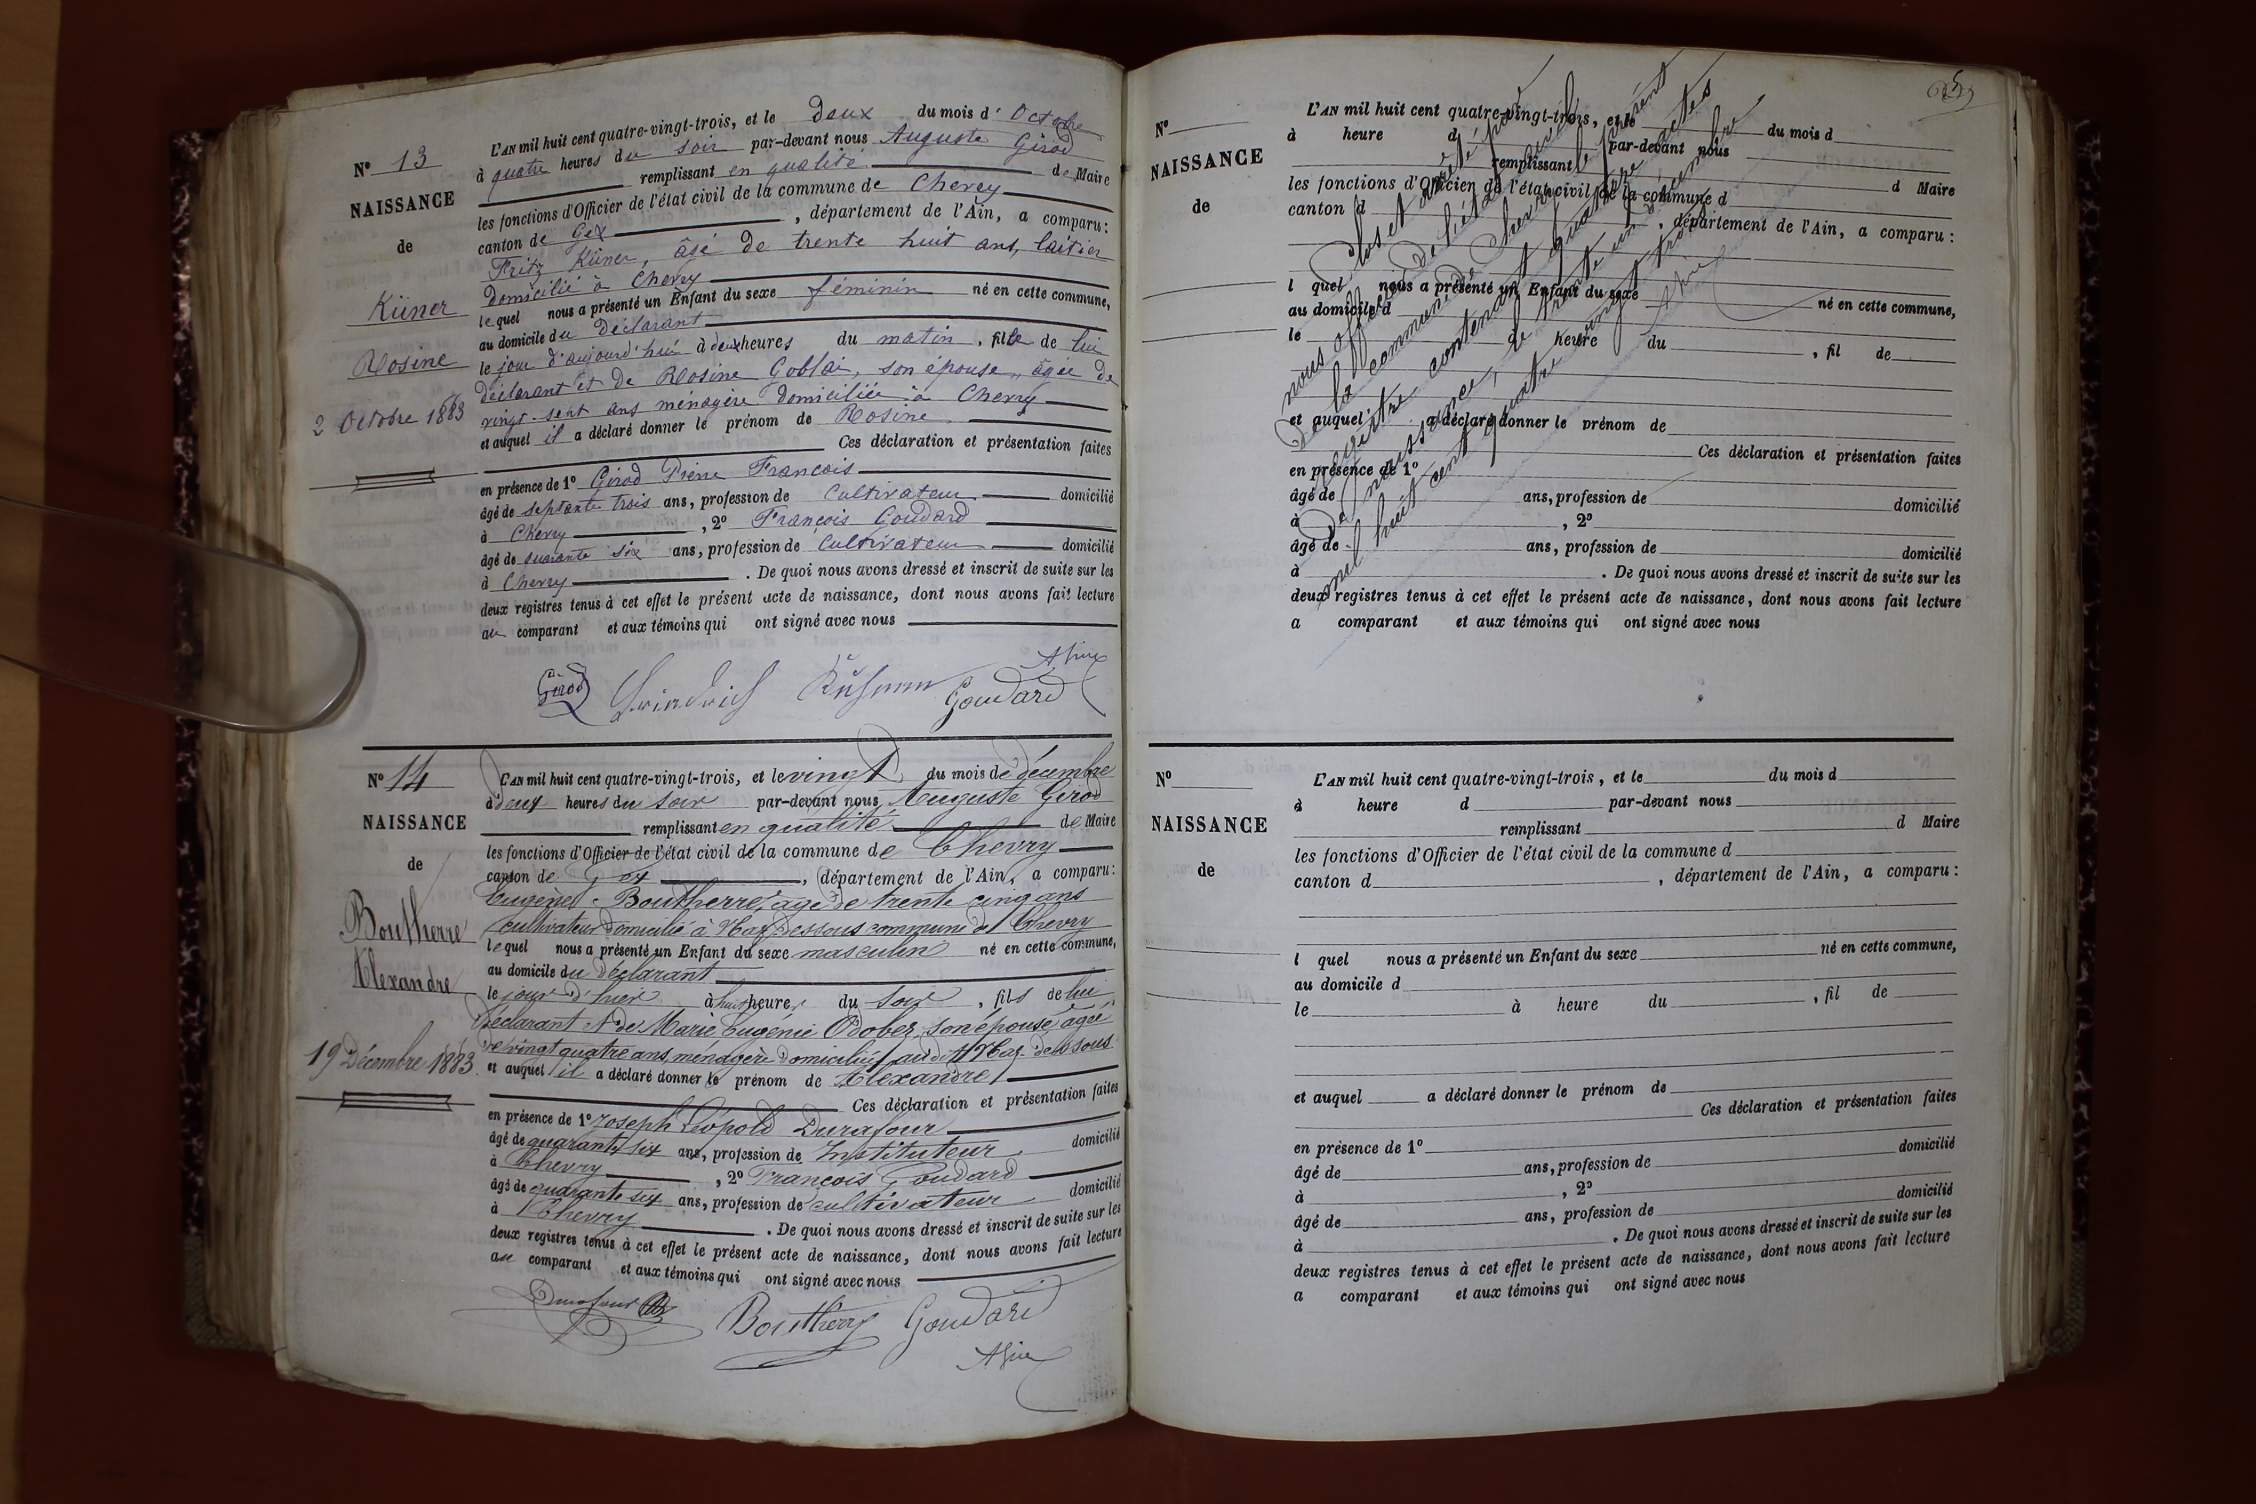 L'AN mil huit cent quatre-vingt-trois, et le deux du mois d' Octobre
N° 13
à quatre heures du soir par-devant nous Auguste Girod
remplissant en qualité de Maire
NAISSANCE
les fonctions d'Officier de l'état civil de la commune de Chevry
de
canton de Gex, département de l'Ain, a comparu :
Fritz Küner, âgé de trente huit ans, laitier
domicilié à Chevry
Küner
lequel nous a présenté un Enfant du sexe féminin né en cette commune,
au domicile du déclarant
Rosine
le jour d'aujourd'hui à deux heures du matin, fille de lui
déclarant et de Rosine Goblai, son épouse, âgée de
2 Octobre 1883
vingt-sept ans ménagère domiciliée à Chevry
et auquel il a déclaré donner le prénom de Rosine
Ces déclaration et présentation faites
en présence de 1° Girod Pierre François
âgé de septante trois ans, profession de Cultivateur domicilié
à Chevry, 2° François Goudard
âgé de quarante six ans, profession de Cultivateur domicilié
à Chevry. De quoi nous avons dressé et inscrit de suite sur les
deux registres tenus à cet effet le présent acte de naissance, dont nous avons fait lecture
au comparant et aux témoins qui ont signé avec nous
Girod Goudard
N° 14
L'AN mil huit cent quatre-vingt-trois, et le vingt du mois de décembre
à deux heures du soir par-devant nous Auguste Girod
NAISSANCE
remplissant en qualité de Maire
les fonctions d'Officier de l'état civil de la commune de Chevry
de
canton de Gex, département de l'Ain, a comparu :
Eugène Boutherre, âgé de trente cinq ans
Boutherre
cultivateur domicilié à Naz-Dessous commune de Chevry
lequel nous a présenté un Enfant du sexe masculin né en cette commune,
Alexandre
au domicile du déclarant
le jour d'hier à huit heures du soir, fils de lui
déclarant et de Marie Eugénie Odobez, son épouse, âgée
19 Décembre 1883.
de vingt quatre ans, ménagère domiciliée audit Naz-dessous
et auquel il a déclaré donner le prénom de Alexandre
Ces déclaration et présentation faites
en présence de 1° Joseph Léopold Durafour
âgé de quarante six ans, profession de Instituteur domicilié
à Chevry, 2° François Goudard
âgé de quarante six ans, profession de cultivateur domicilié
à Chevry. De quoi nous avons dressé et inscrit de suite sur les
deux registres tenus à cet effet le présent acte de naissance, dont nous avons fait lecture
au comparant et aux témoins qui ont signé avec nous
Durafour Boutherre Goudard
N°
NAISSANCE
de
L'AN mil huit cent quatre-vingt-trois, et le du mois d
à heure d par-devant nous
remplissant d Maire
les fonctions d'Officier de l'état civil de la commune d
canton d, département de l'Ain, a comparu :
l quel nous a présenté un Enfant du sexe né en cette commune,
au domicile d
le à heure du, fil de
et auquel a déclaré donner le prénom de
Ces déclaration et présentation faites
en présence de 1°
âgé de ans, profession de domicilié
à, 2°
âgé de ans, profession de domicilié
à. De quoi nous avons dressé et inscrit de suite sur les
deux registres tenus à cet effet le présent acte de naissance, dont nous avons fait lecture
a comparant et aux témoins qui ont signé avec nous
Clos et arrêté par
nous officier de l'état civil
de la commune de Chevry le présent
registre contenant quatorze actes
de naissance, le trente un décembre
mil huit cent quatre vingt trois
N°
NAISSANCE
de
L'AN mil huit cent quatre-vingt-trois, et le du mois d
à heure d par-devant nous
remplissant d Maire
les fonctions d'Officier de l'état civil de la commune d
canton d, département de l'Ain, a comparu :
l quel nous a présenté un Enfant du sexe né en cette commune,
au domicile d
le à heure du, fil de
et auquel a déclaré donner le prénom de
Ces déclaration et présentation faites
en présence de 1°
âgé de ans, profession de domicilié
à, 2°
âgé de ans, profession de domicilié
à. De quoi nous avons dressé et inscrit de suite sur les
deux registres tenus à cet effet le présent acte de naissance, dont nous avons fait lecture
a comparant et aux témoins qui ont signé avec nous